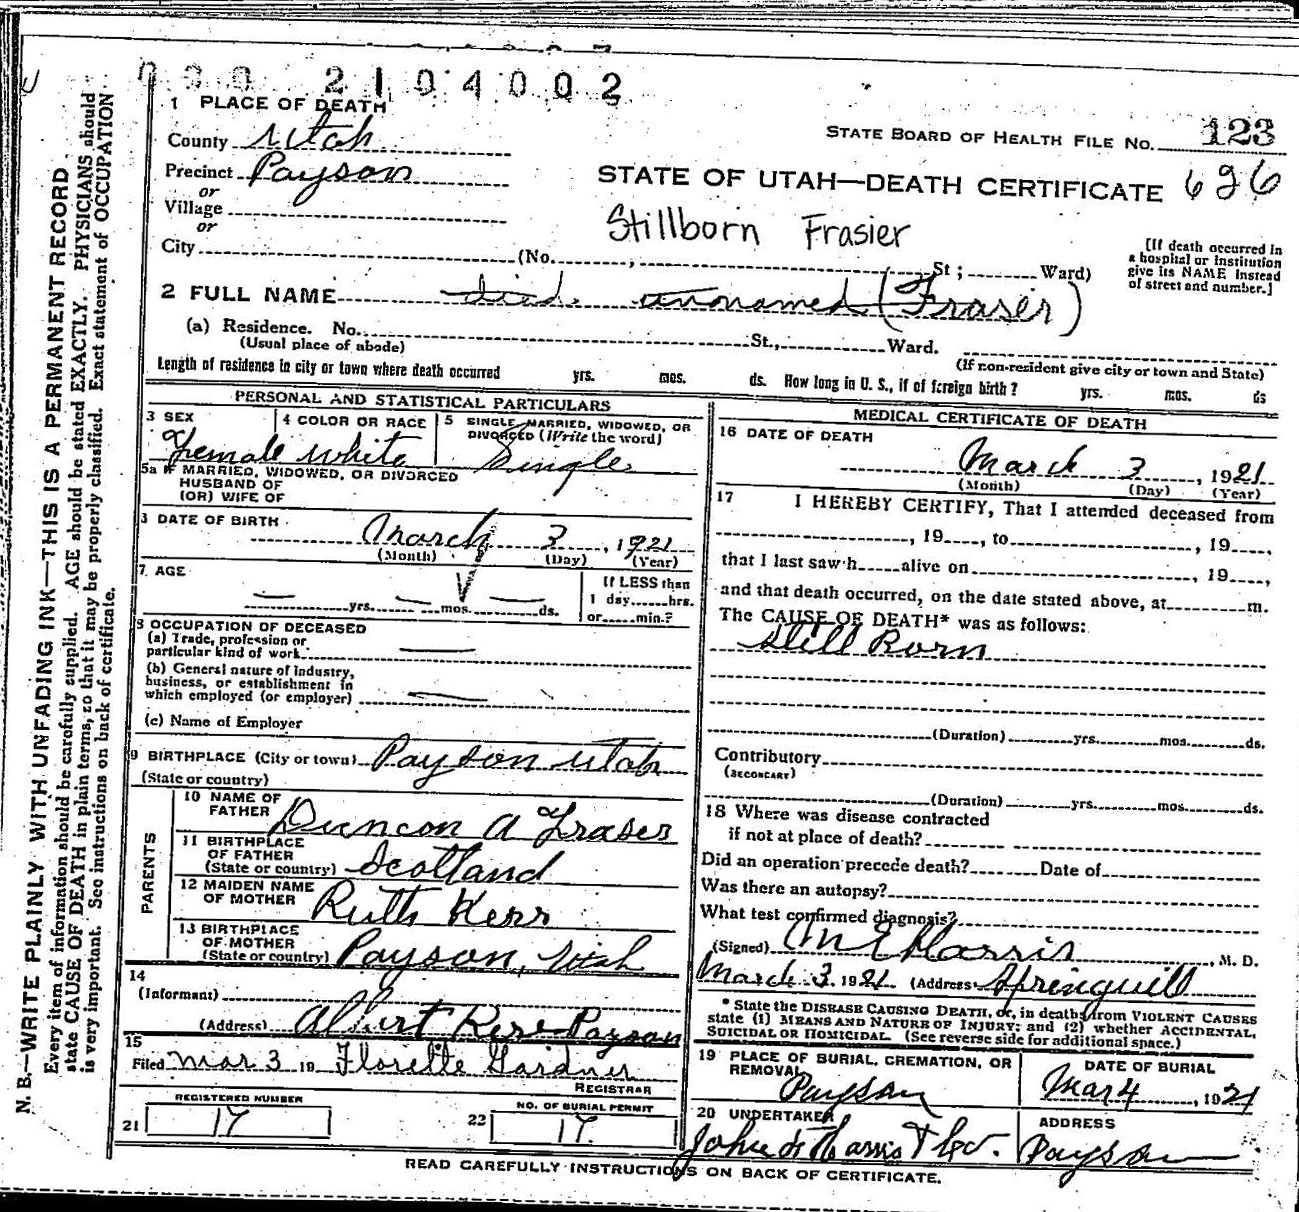 000 2104002
1 PLACE OF DEATH
STATE BOARD OF HEALTH FILE NO. 123
County Utah
Precinct Payson
STATE OF UTAH—DEATH CERTIFICATE 626
or
Village
or
Stillborn Frasier
City (No. , St ; Ward)
[If death occurred in
a hospital or institution
give its NAME instead
of street and number.]
2 FULL NAME died unnamed (Fraser)
(a) Residence. No. St., Ward.
(Usual place of abode) (If non-resident give city or town and State)
Length of residence in city or town where death occurred yrs. mos. ds. How long in U. S., if of foreign birth? yrs. mos. ds
PERSONAL AND STATISTICAL PARTICULARS
3 SEX Female
4 COLOR OR RACE white
5 SINGLE, MARRIED, WIDOWED, OR
DIVORCED (Write the word)
Single
5a IF MARRIED, WIDOWED, OR DIVORCED
HUSBAND OF
(OR) WIFE OF
3 DATE OF BIRTH
March 3, 1921
(Month) (Day) (Year)
7. AGE
yrs. mos. ds.
If LESS than
1 day hrs.
or min.?
8 OCCUPATION OF DECEASED
(a) Trade, profession or
particular kind of work
(b) General nature of industry,
business, or establishment in
which employed (or employer)
(c) Name of Employer
9 BIRTHPLACE (City or town) Payson Utah
(State or country)
PARENTS
10 NAME OF
FATHER Duncon A Fraser
11 BIRTHPLACE
OF FATHER
(State or country) Scotland
12 MAIDEN NAME
OF MOTHER Ruth Kerr
13 BIRTHPLACE
OF MOTHER
(State or country) Payson, Utah
14
(Informant)
(Address) Albert Kerr Payson
15
Filed Mar 3 19 Florette Gardner
REGISTRAR
REGISTERED NUMBER
21 17
NO. OF BURIAL PERMIT
22 17.
MEDICAL CERTIFICATE OF DEATH
16 DATE OF DEATH
March 3, 1921
(Month) (Day) (Year)
17 I HEREBY CERTIFY, That I attended deceased from
, 19 , to , 19 ,
that I last saw h alive on , 19 ,
and that death occurred, on the date stated above, at m.
The CAUSE OF DEATH* was as follows:
Still Born
(Duration) yrs. mos. ds.
Contributory
(SECONDARY)
(Duration) yrs. mos. ds.
18 Where was disease contracted
if not at place of death?
Did an operation precede death? Date of
Was there an autopsy?
What test confirmed diagnosis?
(Signed) M E Harris, M. D.
March 3 1921 (Address) Springvill
* State the DISEASE CAUSING DEATH, or, in deaths from VIOLENT CAUSES
state (1) MEANS AND NATURE OF INJURY; and (2) whether ACCIDENTAL,
SUICIDAL OR HOMICIDAL. (See reverse side for additional space.)
19 PLACE OF BURIAL, CREMATION, OR
REMOVAL
Payson
DATE OF BURIAL
Mar 4, 1921
20 UNDERTAKER
ADDRESS
Payson
READ CAREFULLY INSTRUCTIONS ON BACK OF CERTIFICATE.
N. B.—WRITE PLAINLY WITH UNFADING INK—THIS IS A PERMANENT RECORD
Every item of information should be carefully supplied. AGE should be stated EXACTLY. PHYSICIANS should
state CAUSE OF DEATH in plain terms, so that it may be properly classified. Exact statement of OCCUPATION
is very important. See instructions on back of certificate.